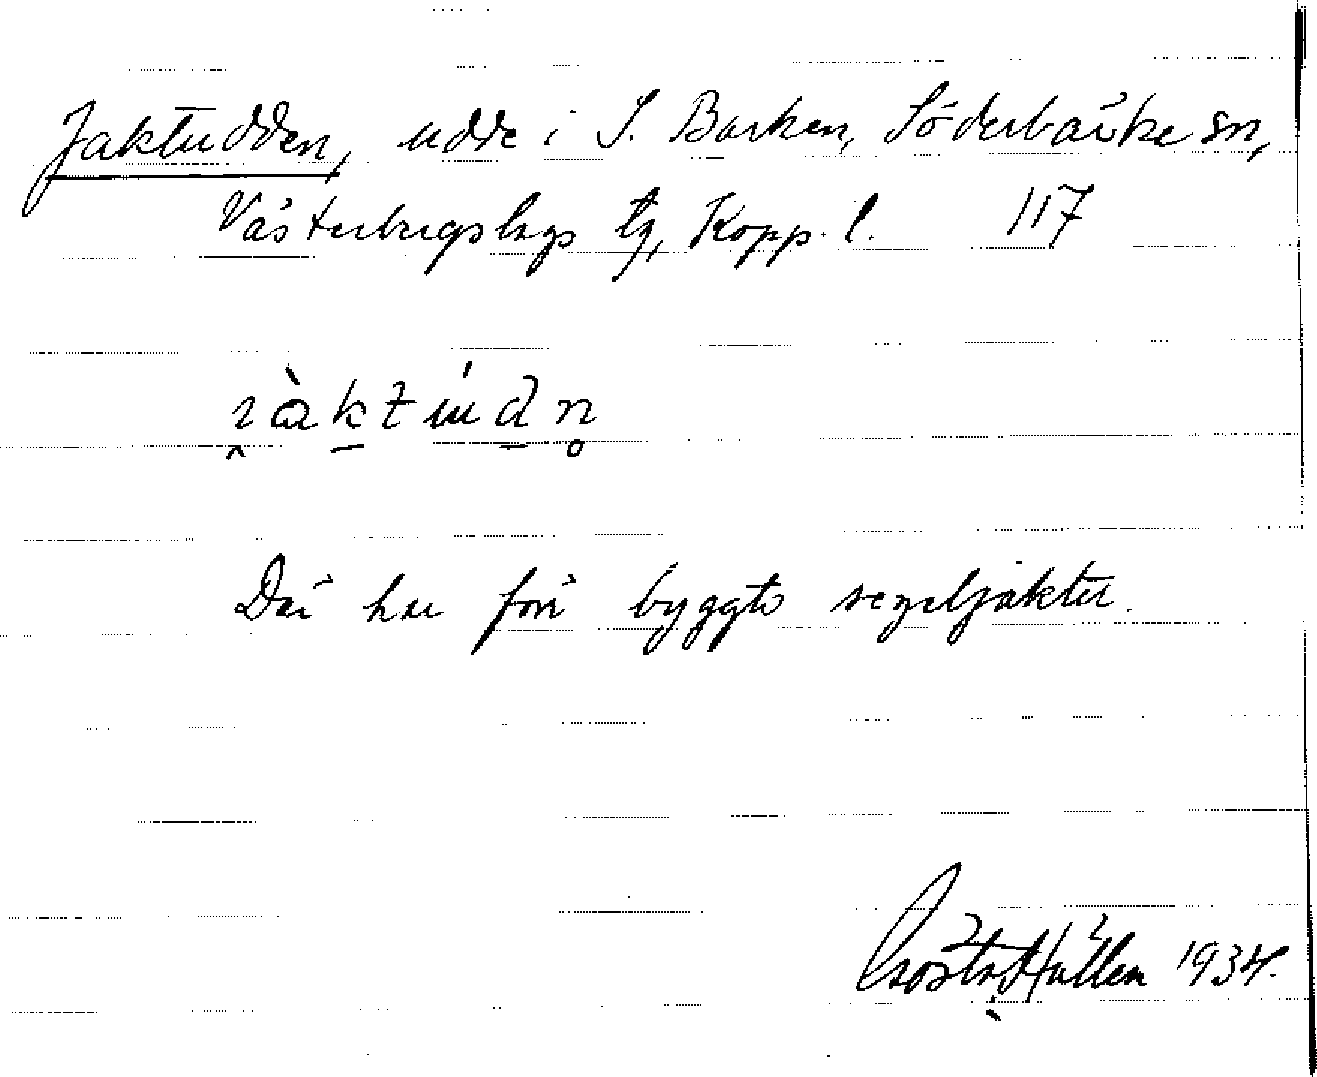 Jaktudden, udde i S. Barken, Söderbärke sn,
Västerbergslags tg, Kopp. l. 117
Där har förr byggts segeljakter.
Gösta Hallén 1934.